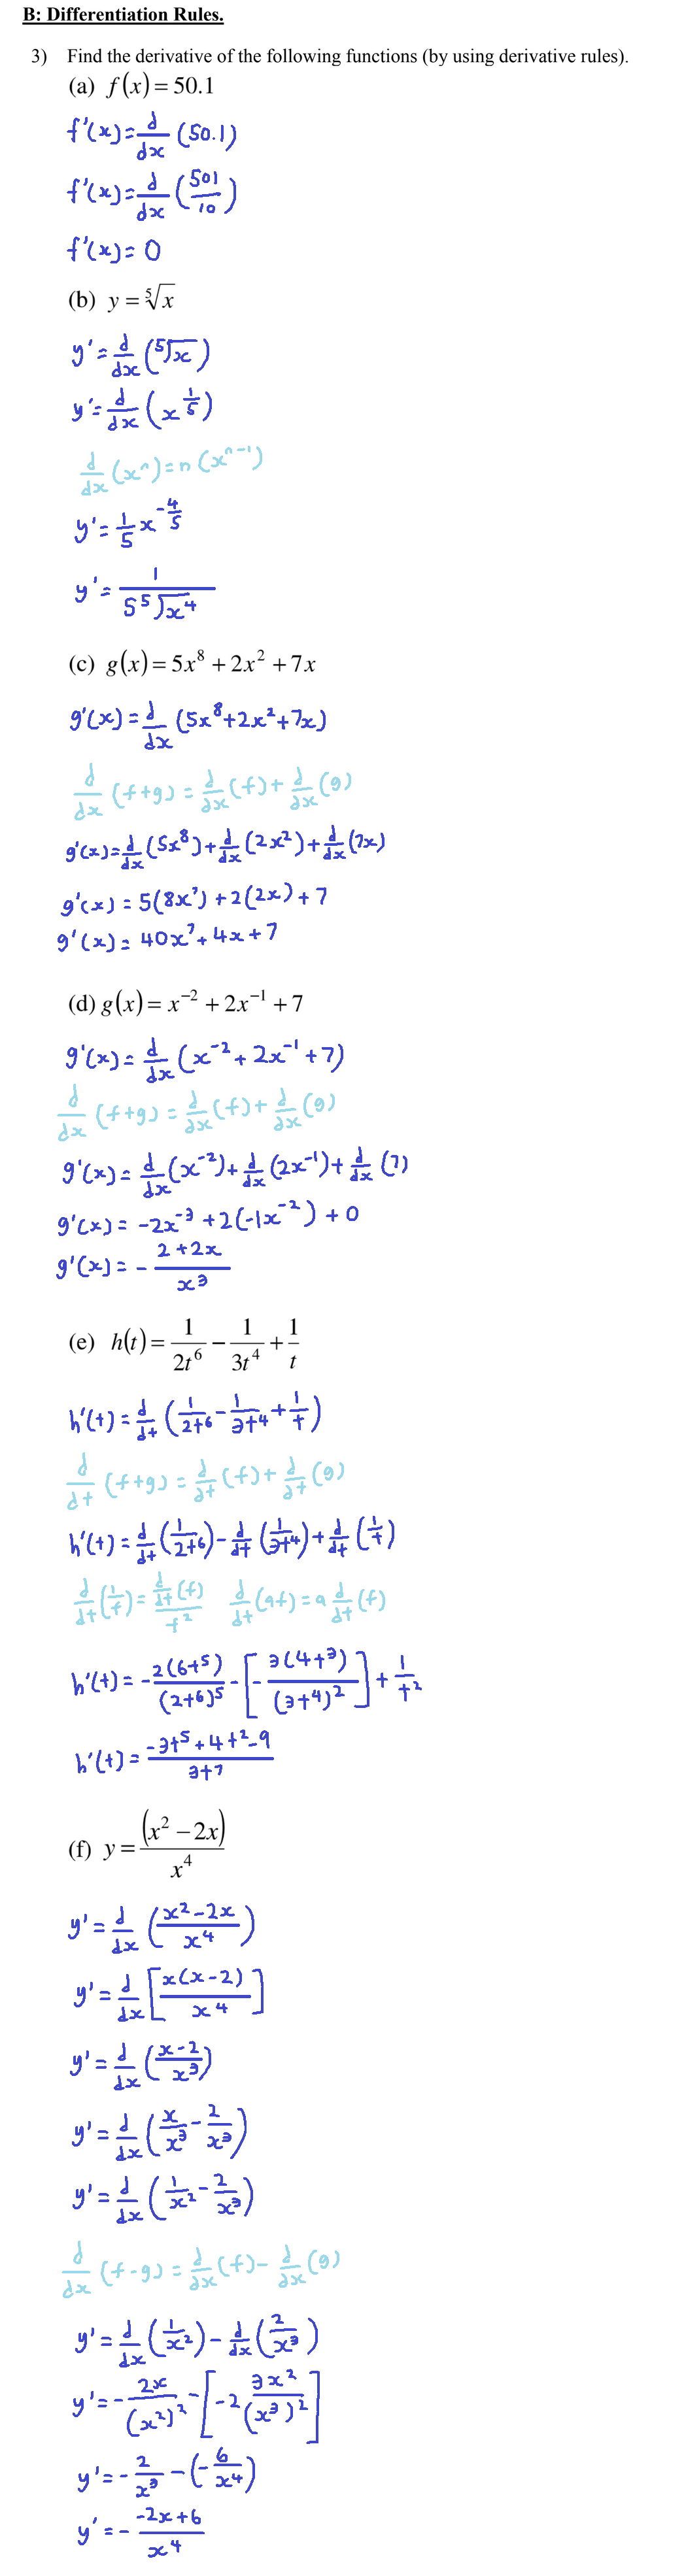 B: Differentiation Rules.
3) Find the derivative of the following functions (by using derivative rules).
(a) f(x) = 50.1
f'(x) = d/dx (50.1)
f'(x) = d/dx (501/10)
f'(x) = 0
(b) y = ⁵√x
y' = d/dx (⁵√x)
y' = d/dx (x^(1/5))
d/dx (xⁿ) = n(x^(n-1))
y' = 1/5 x^(-4/5)
y' = 1/(5 ⁵√x⁴)
(c) g(x) = 5x⁸ + 2x² + 7x
g'(x) = d/dx (5x⁸ + 2x² + 7x)
d/dx (f+g) = d/dx (f) + d/dx (g)
g'(x) = d/dx (5x⁸) + d/dx (2x²) + d/dx (7x)
g'(x) = 5(8x⁷) + 2(2x) + 7
g'(x) = 40x⁷ + 4x + 7
(d) g(x) = x⁻² + 2x⁻¹ + 7
g'(x) = d/dx (x⁻² + 2x⁻¹ + 7)
d/dx (f+g) = d/dx (f) + d/dx (g)
g'(x) = d/dx (x⁻²) + d/dx (2x⁻¹) + d/dx (7)
g'(x) = -2x⁻³ + 2(-1x⁻²) + 0
g'(x) = - (2+2x)/x³
(e) h(t) = 1/(2t⁶) - 1/(3t⁴) + 1/t
h'(t) = d/dt (1/(2t⁶) - 1/(3t⁴) + 1/t)
d/dt (f+g) = d/dt (f) + d/dt (g)
h'(t) = d/dt (1/(2t⁶)) - d/dt (1/(3t⁴)) + d/dt (1/t)
d/dt (1/f) = (d/dt (f))/f² d/dt (af) = a d/dt (f)
h'(t) = - 2(6t⁵)/(2t⁶)⁵ - [- 3(4t³)/(3t⁴)²] + 1/t²
h'(t) = (-3t⁵ + 4t² - 9)/(3t⁷)
(f) y = (x² - 2x)/x⁴
y' = d/dx ((x² - 2x)/x⁴)
y' = d/dx [x(x-2)/x⁴]
y' = d/dx ((x-2)/x³)
y' = d/dx (x/x³ - 2/x³)
y' = d/dx (1/x² - 2/x³)
d/dx (f-g) = d/dx (f) - d/dx (g)
y' = d/dx (1/x²) - d/dx (2/x³)
y' = - 2x/(x²)² - [-2 3x²/(x³)²]
y' = - 2/x³ - (- 6/x⁴)
y' = - (-2x+6)/x⁴